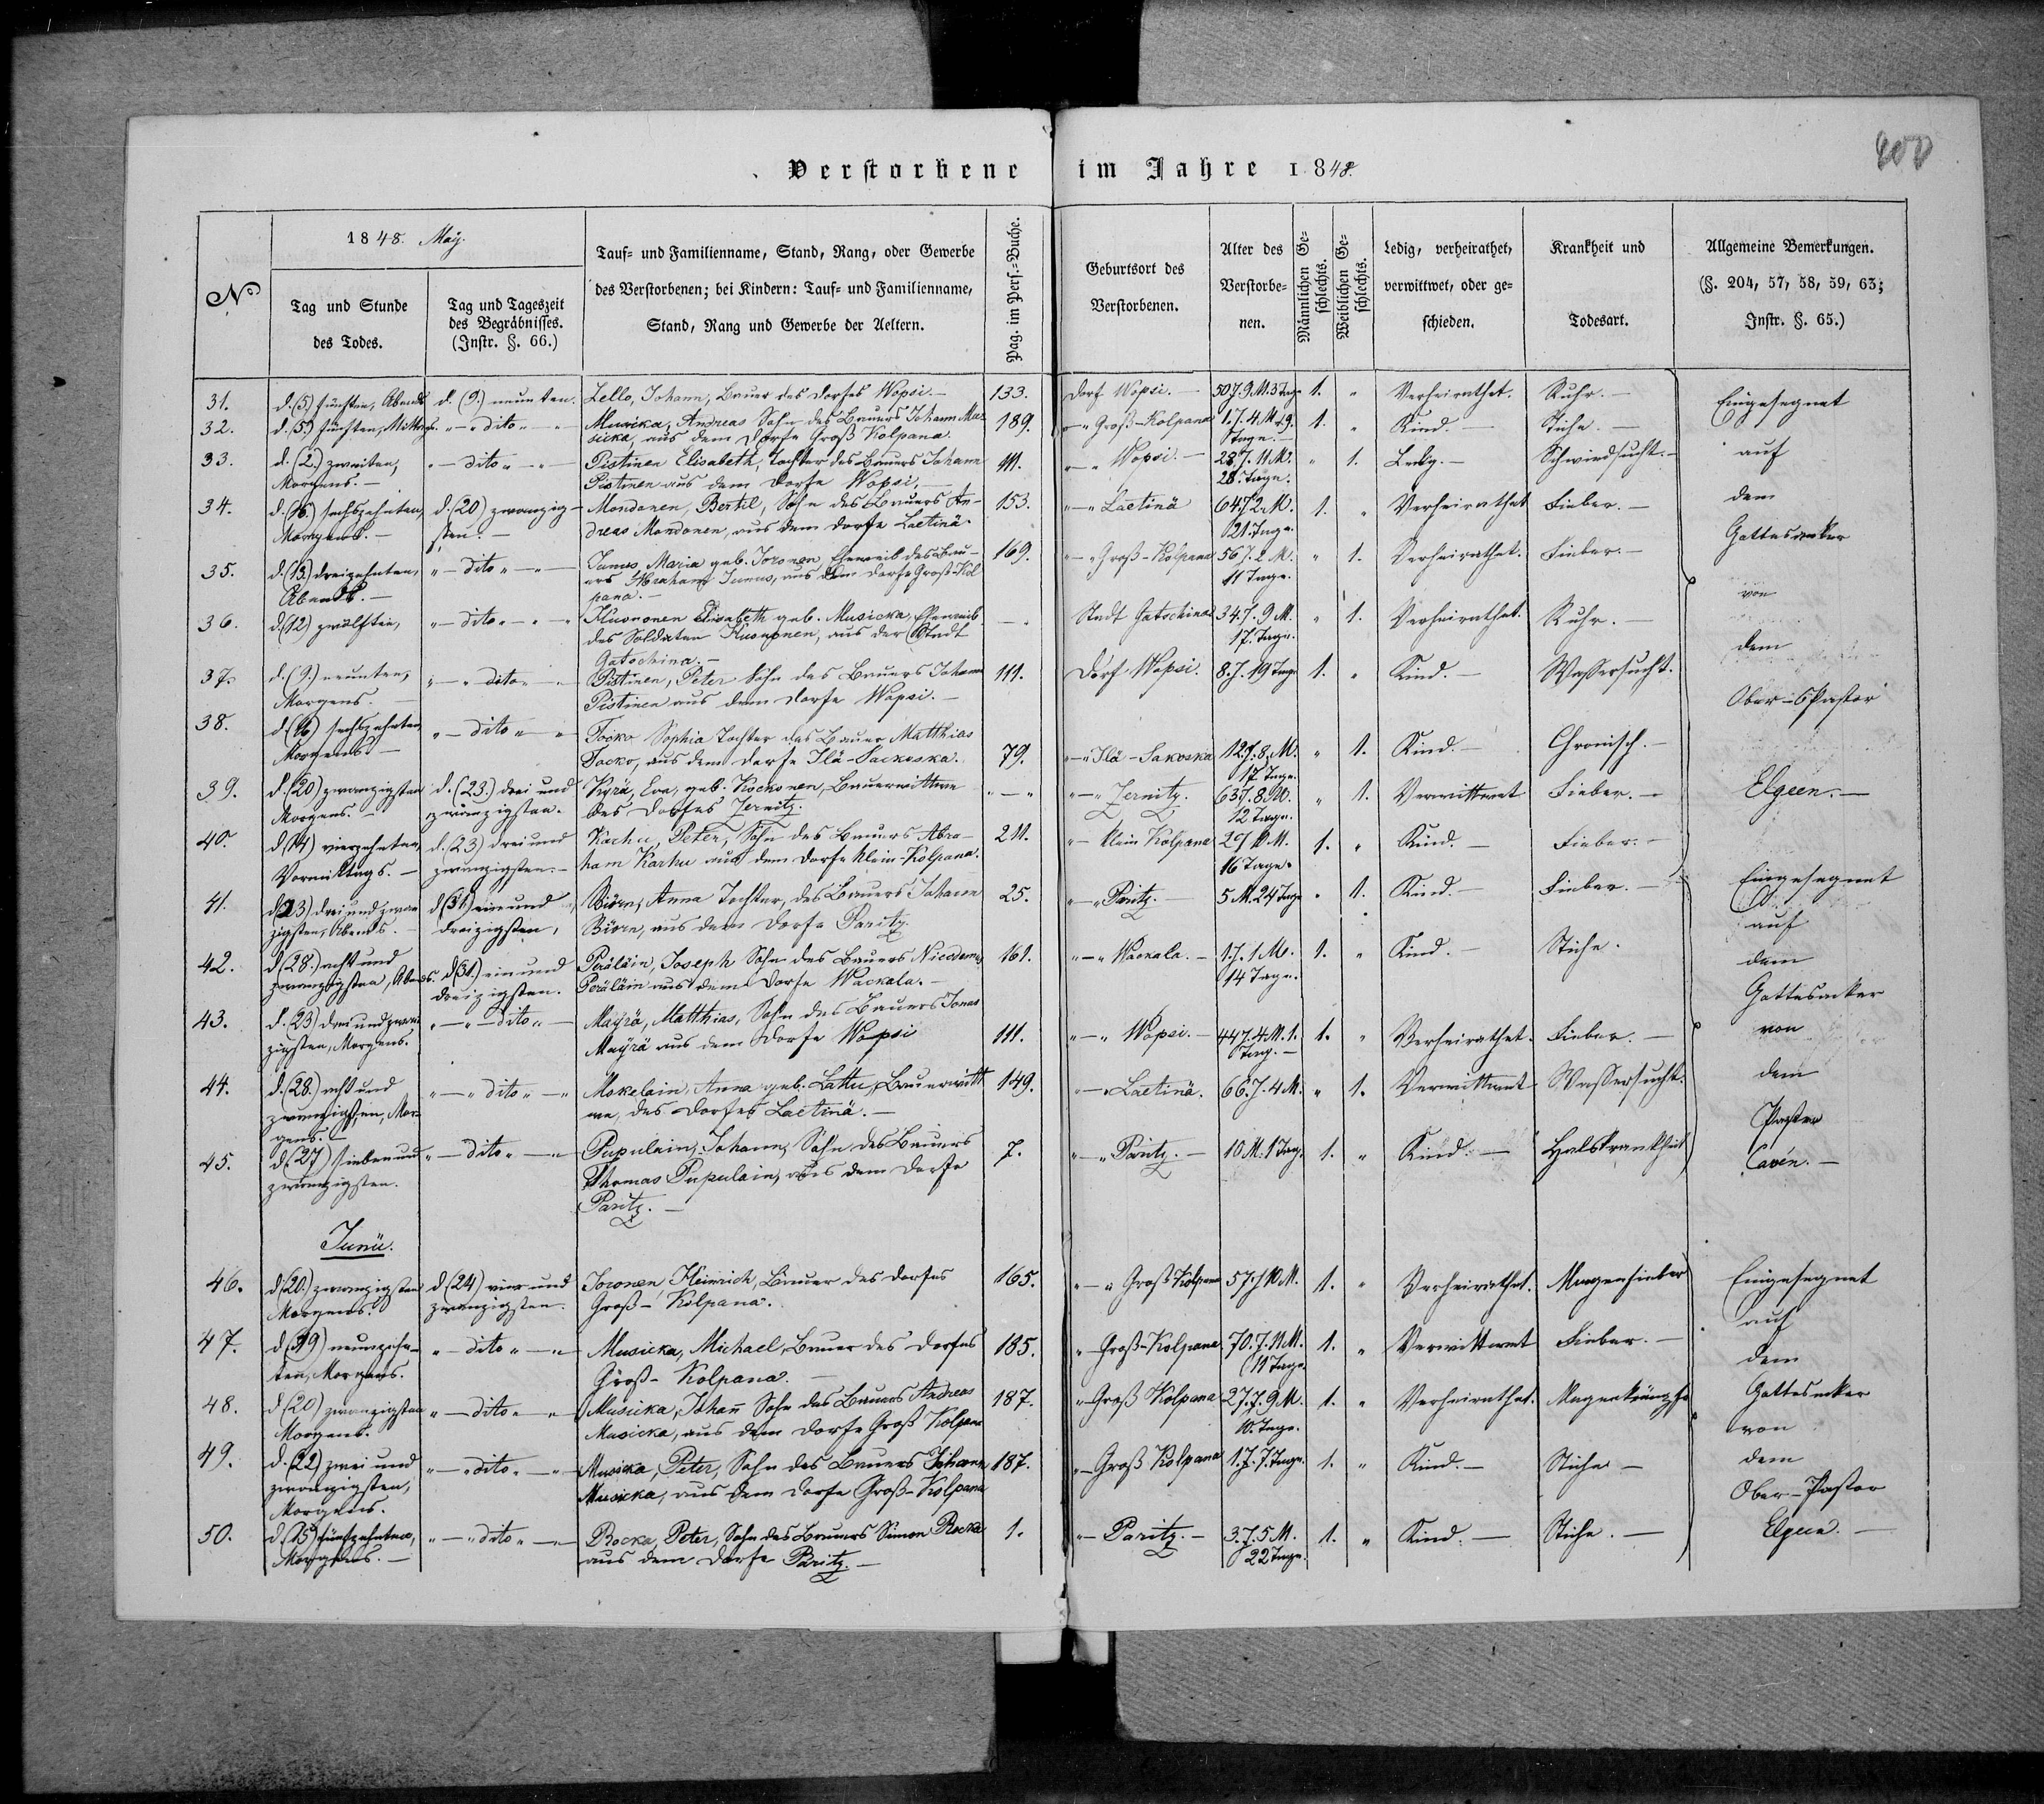 400
Verstorbene im Jahre 1848.
1848. May.
No
Tag und Stunde
des Todes.
Tag und Tageszeit
des Begräbnisses.
(Instr. §. 66.)
Tauf- und Familienname, Stand, Rang, oder Gewerbe
des Verstorbenen; bei Kindern: Tauf- und Familienname,
Stand, Rang und Gewerbe der Aeltern.
Pag. im Pers.-Buche.
Geburtsort des
Verstorbenen.
Alter des
Verstorbe-
nen.
Männlichen Ge-
schlechts.
Weiblichen Ge-
schlechts.
Ledig, verheirathet,
verwittwet, oder ge-
schieden.
Krankheit und
Todesart.
Allgemeine Bemerkungen.
(§. 204, 57, 58, 59, 63;
Instr. §. 65.)
31. d. (5.) fünften, Abends d. (9.) neunten. Lello, Johann, Bauer des Dorfes Wopsi.– 133. Dorf Wopsi.– 50 J. 9. M. 3 Tage 1. " Verheirathet. Ruhr.–
32. d. (5.) fünften, Mittags. "–"dito"–" Musicka, Andreas Sohn des Bauers Johann Mu-
sicka, aus dem Dorfe Groß Kolpana. 189. "–" Groß-Kolpana 1. J. 4. M. 9.
Tage.– 1. " Kind.– Stiche.–
33. d. (2.) zweiten,
Morgens.– "–dito"–" Pistinen Elisabeth, Tochter des Bauers Johann
Pistinen aus dem Dorfe Wopsi.– 111. "–" Wopsi.– 23 J. 11 M.
28. Tage. " 1. Ledig.– Schwindsucht.–
34. d. (16.) sechszehnten,
Morgens.– d. (20) zwanzig-
sten.– Mondonen, Bertil, Sohn des Bauers An-
dreas Mondonen, aus dem Dorfe Laetinä. 153. "–" Laetinä 64 J. 2. M.
21. Tage. 1. " Verheirathet Fieber.–
35. d. (13.) dreizehnten,
Abends.– "–dito"–" Junus, Maria geb. Joronen, Eheweib des Bau-
ers Abraham Junus, aus dem Dorfe Groß-Kol
pana.– 169. "–"Groß-Kolpana 56 J. 2 M.
11 Tage. " 1. Verheirathet. Fieber.–
36. d. (12) zwölften, "–dito"–" Kusnonen Elisabeth geb. Musicka, Eheweib
des Soldaten Kusnonen, aus der Stadt
Gatschina.– –. Stadt Gatschina 34. J. 9 M.
17. Tage. " 1. Verheirathet. Ruhr.–
37. d. (9.) neunten,
Morgens.– "–"dito"–" Pistinen, Peter Sohn des Bauers Johann
Pistinen aus dem Dorfe Wopsi.– 111. Dorf Wopsi. 8. J. 19 Tage 1. " Kind.– Wassersucht.
38. d. (16) sechszehnten
Morgens.– "–dito"–" Tocko Sophia Tochter des Bauer Matthias
Tocko, aus dem Dorfe Ilä-Sackoska. 79. "–"Ilä-Sakoska 12. J. 8. M.
17 Tage. " 1. Kind.– Chronisch.–
39. d. (20) zwanzigsten
Morgens.– d. (23.) drei und
zwanzigsten. Kyrä, Eva, geb. Kockonen, Bauerwittwe
des Dorfes Jernitz. "–" "–" Jernitz. 63 J. 8. M.
12 Tage. " 1. Verwittwet Fieber.–
40. d (14) vierzehnten,
Vormittags.– d. (23) drei und
zwanzigsten.– Karhu, Peter, Sohn des Bauers Abra-
ham Karhu aus dem Dorfe Klein-Kolpana. 211. "–Klein Kolpana 2 J 10 M.
16 Tage. 1. " Kind.– Fieber.–
Eingesegnet
auf
dem
Gottesacker
von
dem
Ober-Pastor
Elgeen.–
41. d (23) drei und zwan
zigsten, Abends.– d (31.) ein und
dreizigsten, Biörn, Anna Tochter, des Bauers Johann
Biörn, aus dem Dorfe Paritz. 25. "–"Paritz.– 5 M. 24 Tage " 1. Kind.– Fieber.–
42. d (28.) acht und
zwanzigsten, Abends. d (31.) ein und
dreizigsten. Peräläin, Joseph Sohn des Bauers Nicodemus
Peräläin aus dem Dorfe Wackala.– 161. "–"Wackala.– 1. J. 1 M.
14 Tage. 1. " Kind.– Stiche.
43. d. (23) drei und zwan
zigsten, Morgens. "–"–dito"– Mäyrä, Matthias, Sohn des Bauers Jonas
Mäyrä aus dem Dorfe Wopsi 111. "–" Wopsi.– 44 J. 4. M. 1.
Tag.– 1. " Verheirathet. Fieber.–
44. d. (28.) acht und
zwanzigsten, Mor-
gens.– "–"dito"–" Mokelain, Anna geb. Lattu, Bauerwitt
we, des Dorfes Laetinä.– 149. "–"Laetinä. 66. J. 4 M. " 1. Verwittwet Wassersucht.
45. d (27) sieben und
zwanzigsten. "–dito"–" Pupulain, Johann, Sohn des Bauers
Thomas Pupulain, aus dem Dorfe
Paritz.– 7. "–"Paritz.– 10 M. 1 Tag. 1. " Kind.– Halskrankheit
Eingesegnet
auf
dem
Gottesacker
von
dem
Pastor
Cavén.–
Junii.
46. d (20.) zwanzigsten
Morgens. d (24) vier und
zwanzigsten. Joronen, Heinrich, Bauer des Dorfes
Groß-Kolpana. 165. "–" Groß Kolpana 57. J 10 M. 1. " Verheirathet. Magenfieber
47. d (19) neunzehn-
ten, Morgens. "–dito"–" Musicka, Michael, Bauer des Dorfes
Groß-Kolpana.– 185. " Groß-Kolpana 70. J. 11 M.
11 Tage 1. " Verwittwet Fieber.–
48. d (20) zwanzigsten
Morgens. "–dito"–" Musicka, Johan̄ Sohn des Bauers Andreas
Musicka, aus dem Dorfe Groß Kolpana 187. "–Groß Kolpana 27. J. 9 M.
10. Tage. 1. " Verheirathet.
49. d. (22) zwei und
zwanzigsten,
Morgens. "–"dito"–" Musicka, Peter, Sohn des Bauers Johann
Musicka, aus dem Dorfe Groß-Kolpana 187. "–Groß Kolpana 1. J. 7. Tage. 1. " Kind.– Stiche–
50. d. (15) fünfzehnten,
Morgens.– "–"dito"–" Rocka, Peter, Sohn des Bauers Simon Rocka
aus dem Dorfe Paritz.– 1. "–Paritz.– 3. J. 5 M.
22 Tage. 1. " Kind.– Stiche.–
Eingesegnet
auf
dem
Gottesacker
von
dem
Ober-Pastor
Elgeen.–